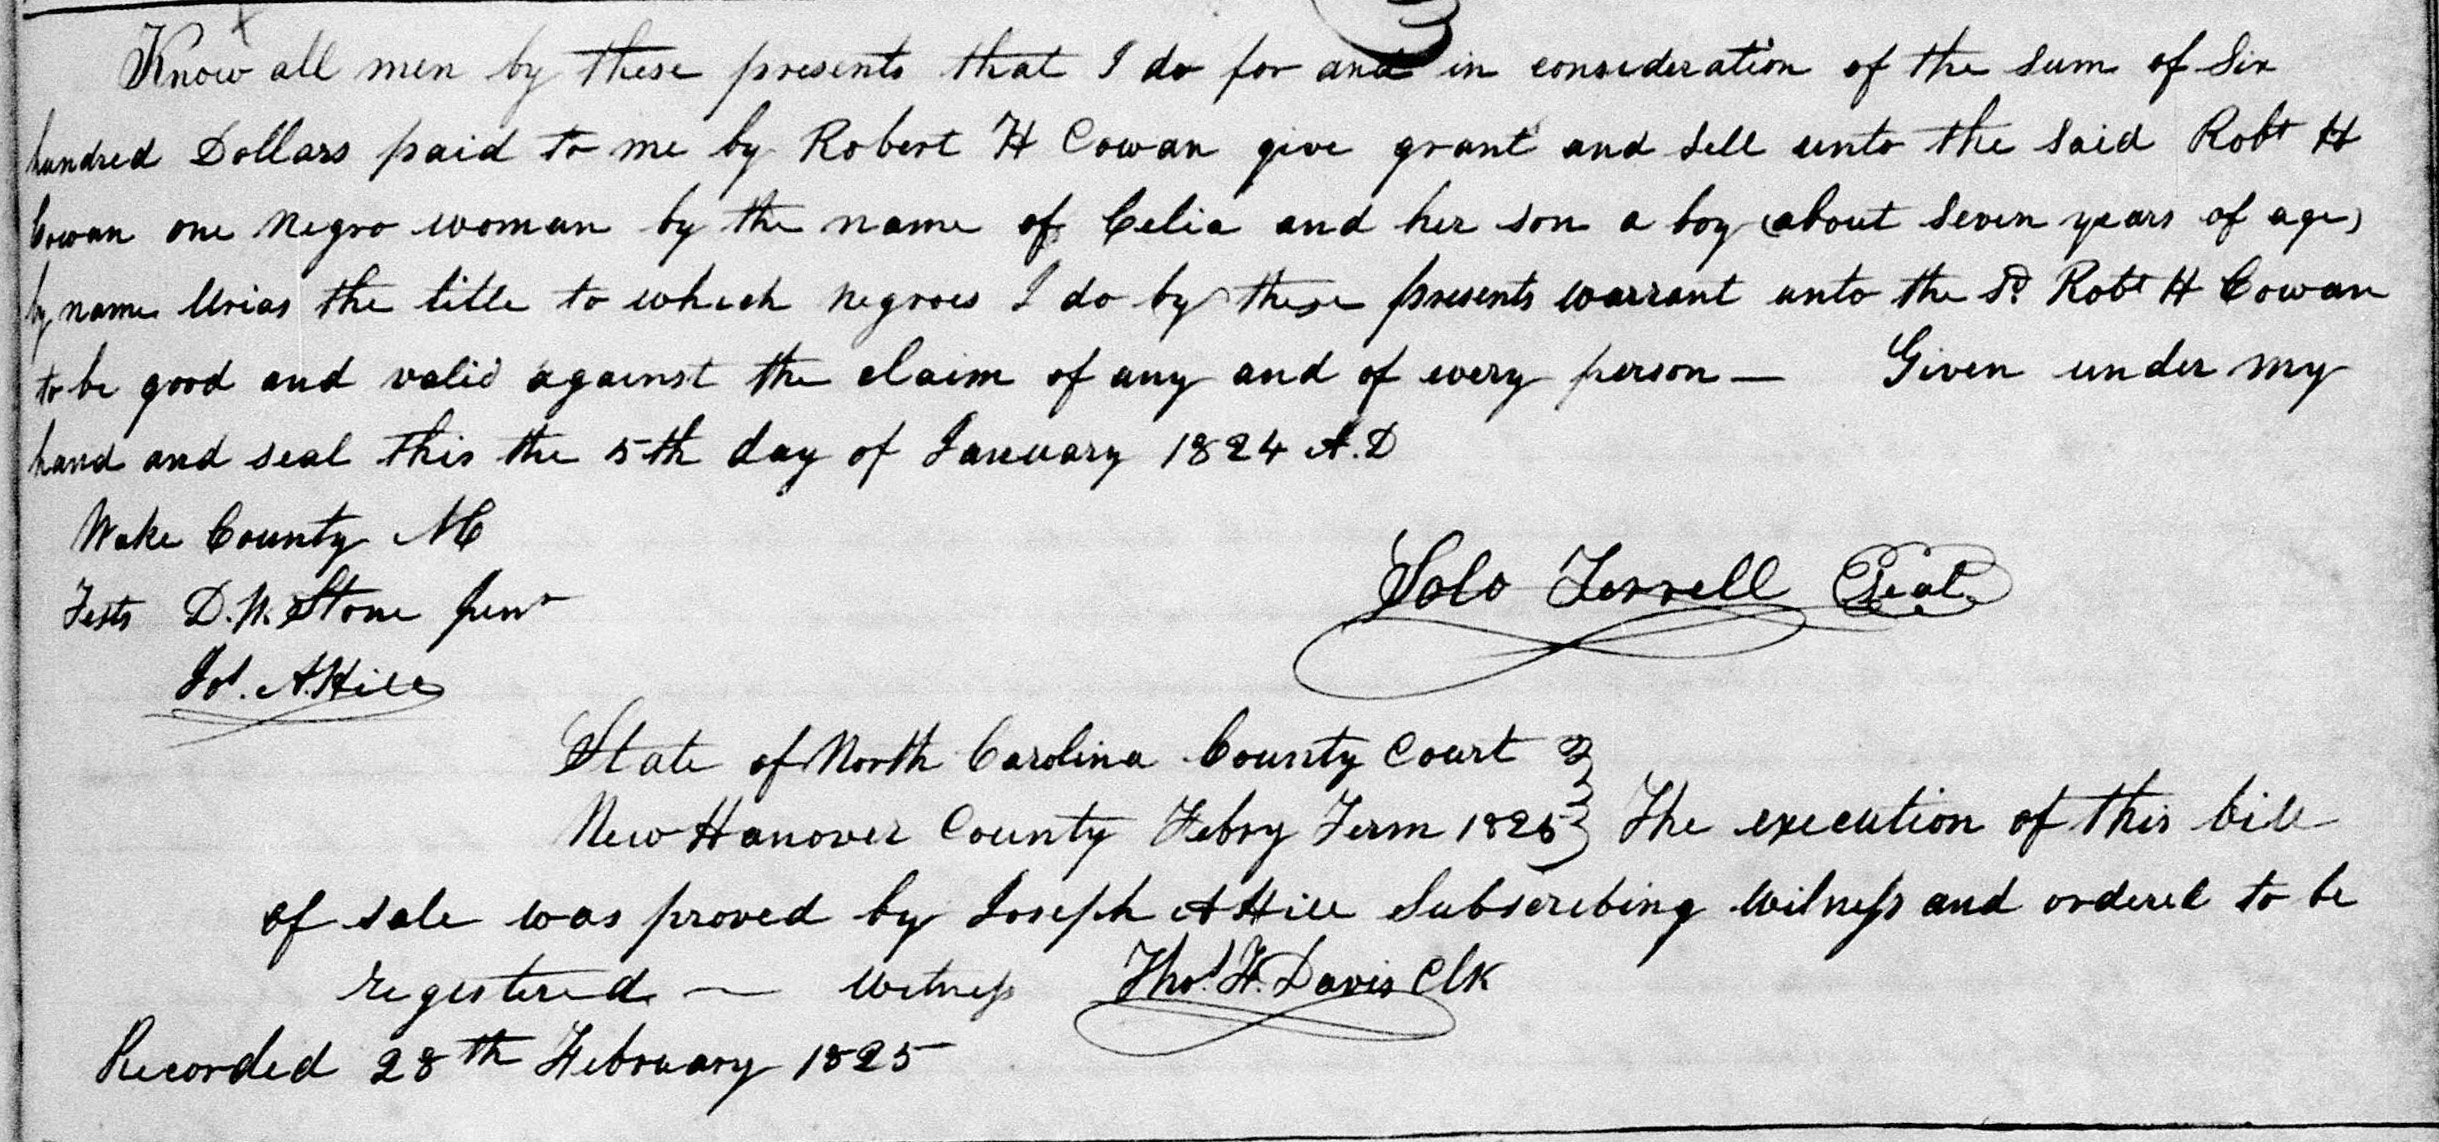 Know all men by these presents that I do for and in consideration of the sum of Six
hundred Dollars paid to me by Robert H Cowan give grant and sell unto the said Robt H
Cowan one negro woman by the name of Celia and her son a boy (about seven years of age)
by name Urias the title to which negroes I do by these presents warrant unto the sd Robt H Cowan
to be good and valid against the claim of any and of every person — Given under my
hand and seal this the 5th day of January 1824 A.D
Wake County NC
Tests D. W. Stone Junr
Solo Terrell Seal
Jos. A. Hill
State of North Carolina County Court }
New Hanover County Febry Term 1825 } The execution of this bill
of sale was proved by Joseph A Hill Subscribing Witness and ordered to be
registered — Witness Thos. F. Davis Clk
Recorded 28th February 1825